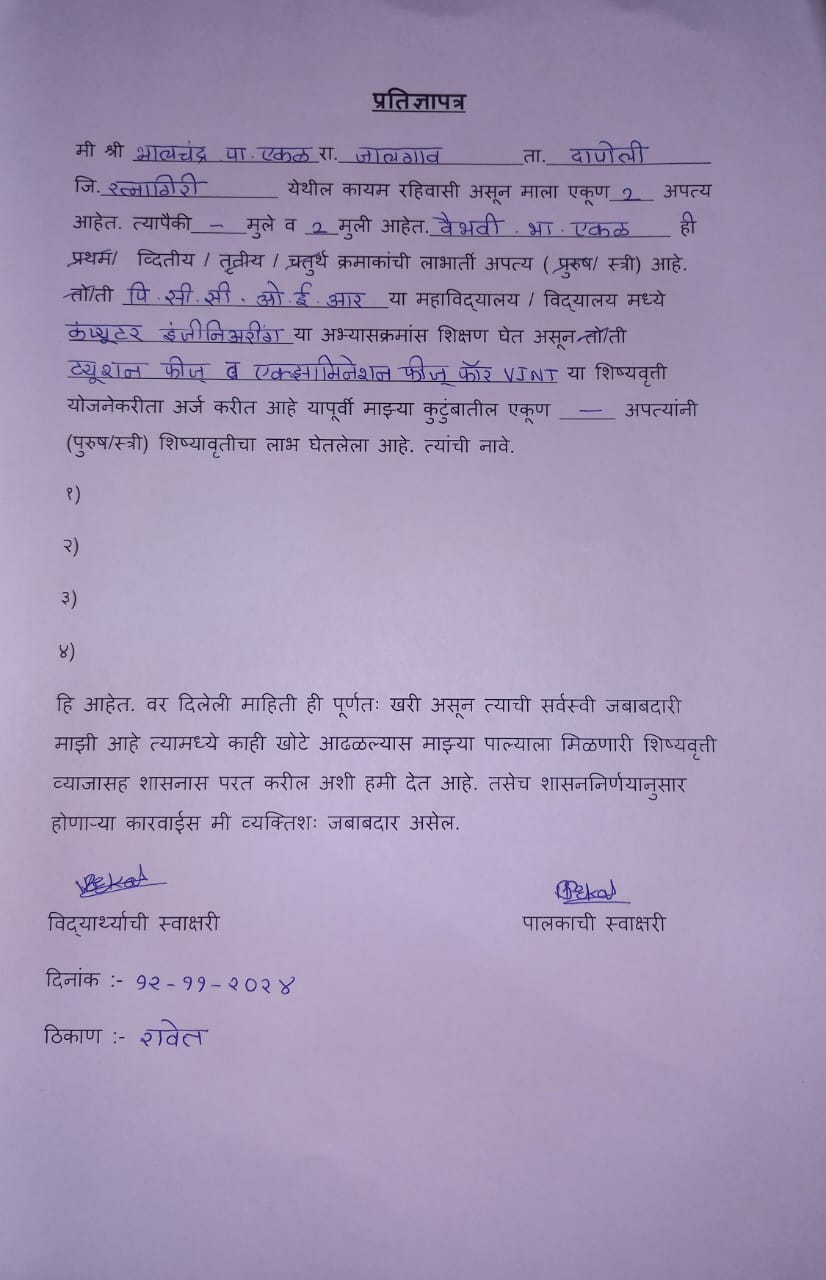 प्रतिज्ञापत्र
मी श्री भालचंद्र पा. एकळ रा. जालगाव ता. दापोली
जि. रत्नागिरी येथील कायम रहिवासी असून माला एकूण 2 अपत्य
आहेत. त्यापैकी - मुले व 2 मुली आहेत. वैभवी . भा . एकळ ही
प्रथम/ व्दितीय / तृतीय / चतुर्थ क्रमाकांची लाभार्ती अपत्य ( पुरुष/ स्त्री) आहे.
तो/ती पि . सी . सी . ओ . ई . आर या महाविद्यालय / विद्यालय मध्ये
कंप्युटर इंजीनिअरींग या अभ्यासक्रमांस शिक्षण घेत असून तो/ती
ट्यूशन फीज् व एक्झामिनेशन फीज् फॉर VJNT या शिष्यवृत्ती
योजनेकरीता अर्ज करीत आहे यापूर्वी माझ्या कुटुंबातील एकूण — अपत्यांनी
(पुरुष/स्त्री) शिष्यावृतीचा लाभ घेतलेला आहे. त्यांची नावे.
१)
२)
३)
४)
हि आहेत. वर दिलेली माहिती ही पूर्णतः खरी असून त्याची सर्वस्वी जबाबदारी
माझी आहे त्यामध्ये काही खोटे आढळल्यास माझ्या पाल्याला मिळणारी शिष्यवृत्ती
व्याजासह शासनास परत करील अशी हमी देत आहे. तसेच शासननिर्णयानुसार
होणाऱ्या कारवाईस मी व्यक्तिशः जबाबदार असेल.
विद्यार्थ्याची स्वाक्षरी पालकाची स्वाक्षरी
दिनांक :- १२-११-२०२४
ठिकाण :- रावेत